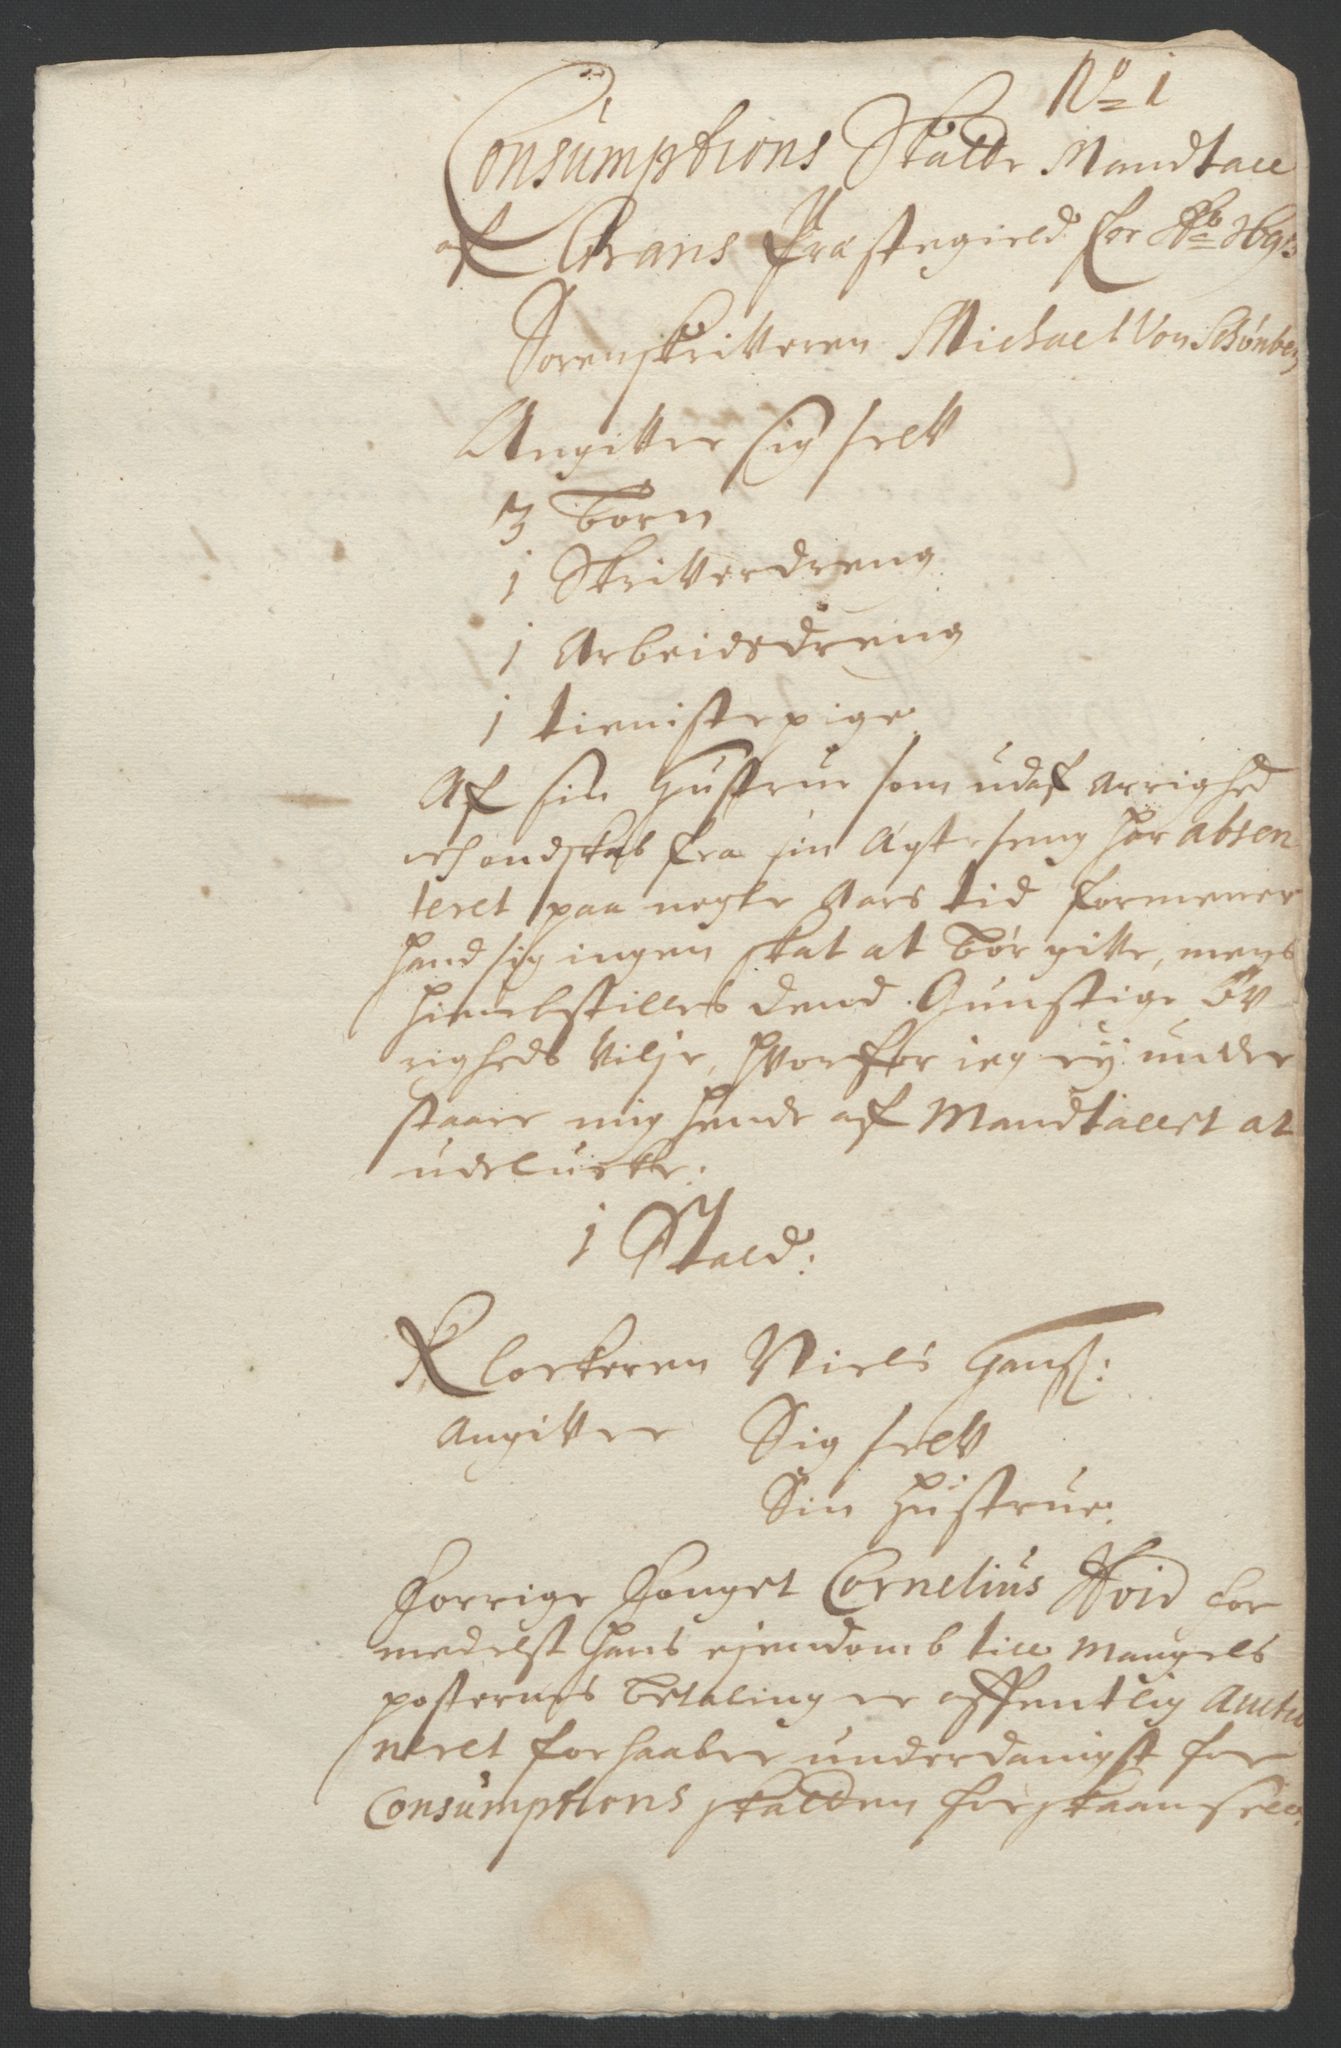 No 1
Consumptions Skatte Mandtall
af Grans Præstegield for Ao 1693
Sorenskrifveren Michael Von Schønberg
Angifver sig self
3 Børn
1 Skrifverdreng
1 Arbeidsdreng
1 tieniste pige
Af sin Hustrue som udaf arrighed
ondskab fra sin Ægte seng har absen
teret paa nogle Aars tid formener
hand sig ingen skat at bør gifve, mens
hiemstilles dend Gunstige Øf
righeds Vilje, hvorfor ieg ey under
staar mig hende af Mandtallet at
udelucke:
1 Stald:
Klockeren Niels Hanß:
Angifver Sig self
Sin Hustrue:
Forrige Fouget Cornelius Hvid for
medelst hans ejendomb till Mangels
posternes betaling er offentlig Auctio
neret forhaaber underdanigst for
Consumptions skatten forskaansell